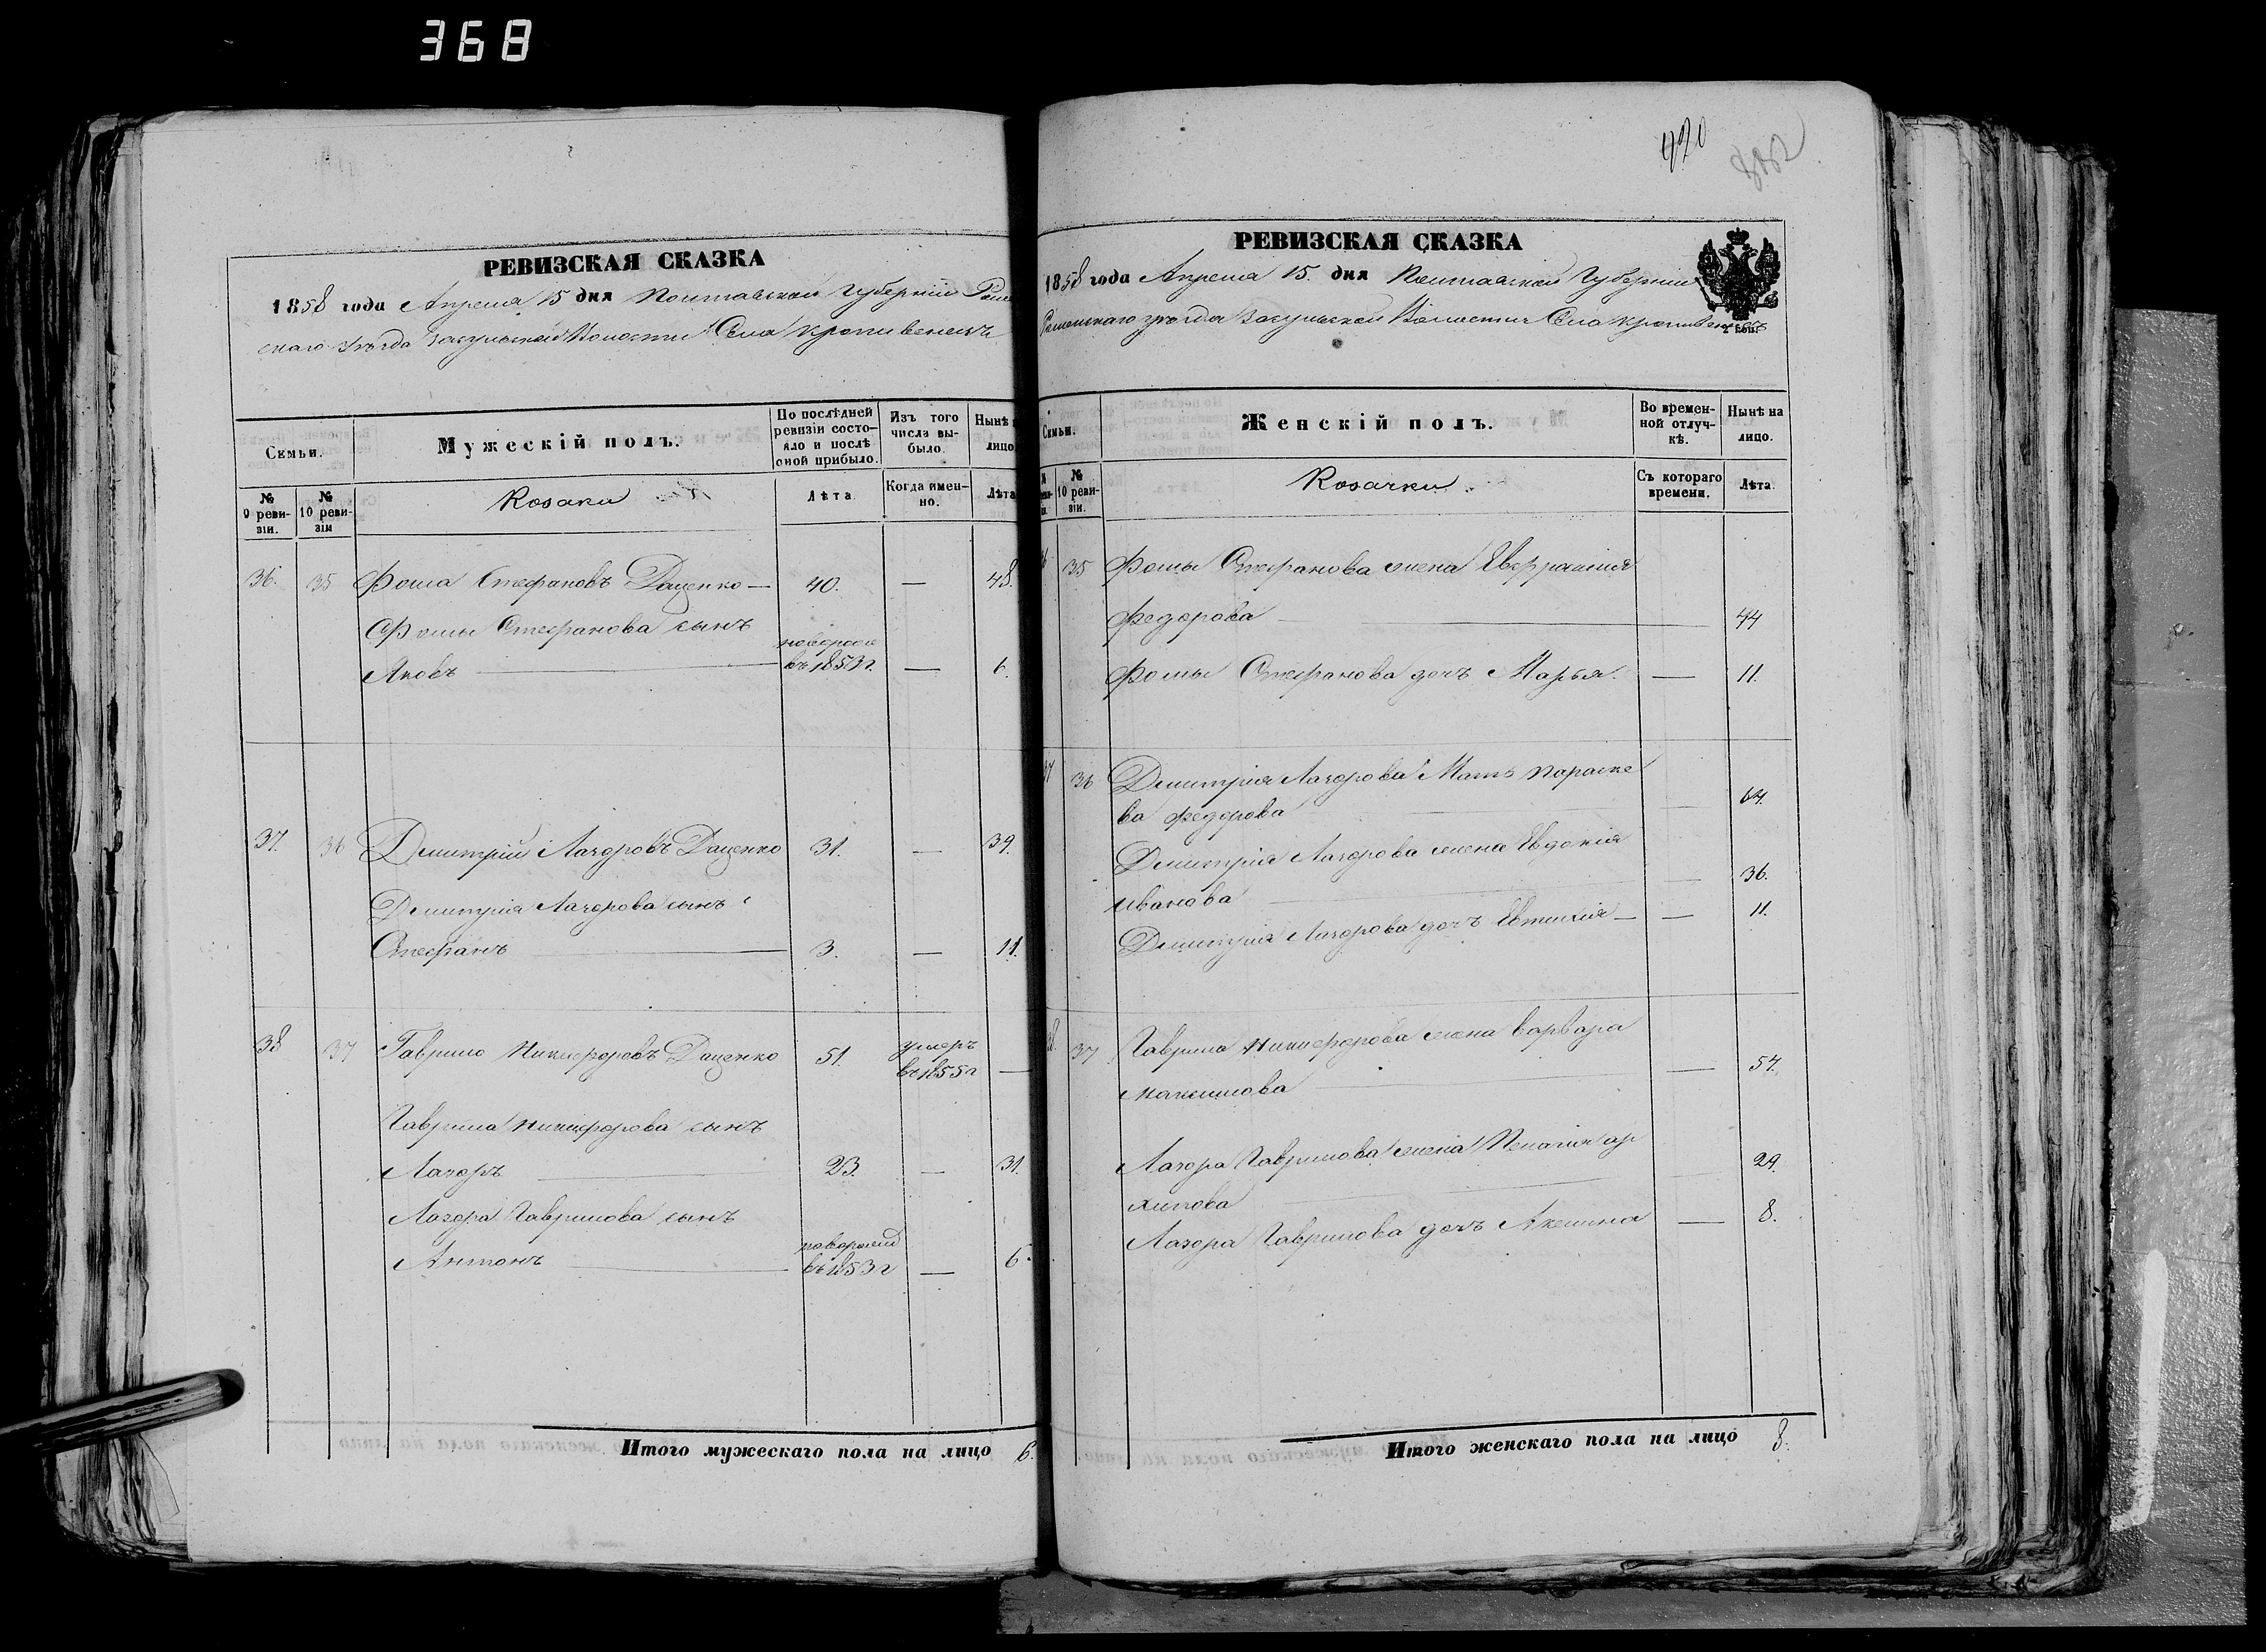 368
РЕВИЗСКАЯ СКАЗКА
1858 года Апреля 15 дня Полтавской Губерніи Роме
скаго Уезда Засульской Волости Села Кропивенецъ
Семьи.
Мужескій полъ.
По послѣдней ревизіи состояло и послѣ оной прибыло.
Изъ того числа выбыло.
Нынѣ
лицо
№ 9 ревизіи.
№ 10 ревизіи
Козаки
Лѣта
Когда именно.
Лѣта
36. 35 Фома Стефановъ Даценко — 40. — 48.
Фомы Стефанова сынъ
Яковъ — новорож въ 1853 г. — 6.
37. 36 Дмитрій Лазоровъ Даценко 31. — 39.
Дмитрія Лазорова сынъ
Стефанъ — 3. — 11.
38 37 Гаврило Никифоровъ Даценко 51. умеръ въ 1855 г —
Гаврила Никифорова сынъ
Лазоръ — 23. — 31.
Лазора Гаврилова сынъ
Антонъ — новорожд въ 1853 г — 6.
Итого мужескаго пола на лицо 6.
420
РЕВИЗСКАЯ СКАЗКА
1858 года Апреля 15. дня Полтавской Губерніи
Роменскаго уезда Засульской Волости Села Кропивенецъ
Семьи.
Женскій полъ.
Во временной отлучкѣ.
Нынѣ на лицо.
№ 10 ревизіи.
Козачки
Съ котораго времени.
Лѣта.
35 Фомы Стефанова жена Евфросинія
Федорова — 44
Фомы Стефанова дочь Марья. — 11.
36 Дмитрія Лазорова Мать Параске
ва Федорова — 64.
Дмитрія Лазорова жена Евдокія
Иванова — 36.
Дмитрія Лазорова дочь Евтихія — — 11.
37 Гаврила Никифорова жена Варвара
Максимова — 57.
Лазора Гаврилова жена Пелагия ар
хипова — 29.
Лазора Гаврилова дочь Акилина — 8.
Итого женскаго пола на лицо 8.